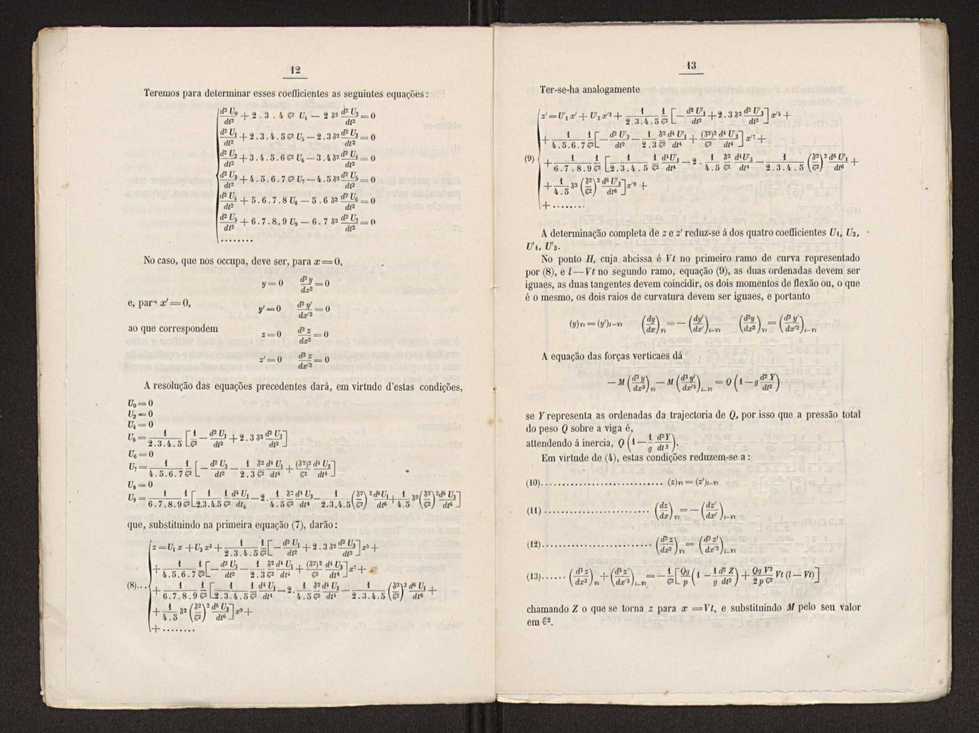 12
Teremos para determinar esses coefficientes as seguintes equações:
d² U₀/dt² + 2 . 3 . 4 ℭ² U₄ — 2 𝔅² d² U₂/dt² = 0
d² U₁/dt² + 2 . 3 . 4 . 5 ℭ² U₅ — 2 . 3 𝔅² d² U₃/dt² = 0
d² U₂/dt² + 3 . 4 . 5 . 6 ℭ² U₆ — 3 . 4 𝔅² d² U₄/dt² = 0
d² U₃/dt² + 4 . 5 . 6 . 7 ℭ² U₇ — 4 . 5 𝔅² d² U₅/dt² = 0
+ 5 . 6 . 7 . 8 U₈ — 5 . 6 𝔅² d² U₆/dt² = 0
+ 6 . 7 . 8 . 9 U₉ — 6 . 7 𝔅² = 0
........
No caso, que nos occupa, deve ser, para x = 0,
y = 0 d² y/dx² = 0
e, para x′ = 0,
y′ = 0 d² y′/dx′² = 0
ao que correspondem
z = 0 d² z/dx² = 0
z′ = 0 d² z/dx′² = 0
A resolução das equações precedentes dará, em virtude d'estas condições,
U₀ = 0
U₂ = 0
U₄ = 0
U₅ = 1/2.3.4.5 1/ℭ² [— d² U₁/dt² + 2 . 3 𝔅² d² U₃/dt²]
U₆ = 0
U₇ = 1/4.5.6.7 1/ℭ² [— d² U₃/dt² — 1/2.3 𝔅²/ℭ² d⁴ U₁/dt⁴ + (𝔅²)²/ℭ² d⁴ U₃/dt⁴]
U₈ = 0
U₉ = 1/6.7.8.9 1/ℭ² [1/2.3.4.5 1/ℭ² d⁴ U₁/dt⁴ — 2 . 1/4.5 𝔅²/ℭ² d⁴ U₃/dt⁴ — 1/2.3.4.5 (𝔅²/ℭ²)² d⁶ U₁/dt⁶ + 1/4.5 𝔅² (𝔅²/ℭ²)² d⁶ U₃/dt⁶]
que, substituindo na primeira equação (7), darão:
z = U₁ x + U₃ x³ + 1/2.3.4.5 1/ℭ² [— d² U₁/dt² + 2 . 3 𝔅² d² U₃/dt²] x⁵ +
+ 1/4.5.6.7 1/ℭ² [— d² U₃/dt² — 1/2.3 𝔅²/ℭ² d⁴ U₁/dt⁴ + (𝔅²)²/ℭ² d⁴ U₃/dt⁴] x⁷ +
(8)... + 1/6.7.8.9 1/ℭ² [1/2.3.4.5 1/ℭ² d⁴ U₁/dt⁴ — 2 . 1/4.5 𝔅²/ℭ² d⁴ U₃/dt⁴ — 1/2.3.4.5 (𝔅²/ℭ²)² d⁶ U₁/dt⁶ +
+ 1/4.5 𝔅² (𝔅²/ℭ²)² d⁶ U₃/dt⁶] x⁹ +
+ ........
13
Ter-se-ha analogamente
z′ = U′₁ x′ + U′₃ x′³ + 1/2.3.4.5 1/ℭ² [— d² U′₁/dt² + 2 . 3 𝔅² d² U′₃/dt²] x′⁵ +
+ 1/4.5.6.7 1/ℭ² [— d² U′₃/dt² — 1/2.3 𝔅²/ℭ² d⁴ U′₁/dt⁴ + (𝔅²)²/ℭ² d⁴ U′₃/dt⁴] x′⁷ +
(9) + 1/6.7.8.9 1/ℭ² [1/2.3.4.5 1/ℭ² d⁴ U′₁/dt⁴ — 2 . 1/4.5 𝔅²/ℭ² d⁴ U′₃/dt⁴ — 1/2.3.4.5 (𝔅²/ℭ²)² d⁶ U′₁/dt⁶ +
+ 1/4.5 𝔅² (𝔅²/ℭ²)² d⁶ U′₃/dt⁶] x′⁹ +
+ ........
A determinação completa de z e z′ reduz-se á dos quatro coefficientes U₁, U₃,
U′₁, U′₃.
No ponto H, cuja abcissa é Vt no primeiro ramo de curva representado
por (8), e l — Vt no segundo ramo, equação (9), as duas ordenadas devem ser
iguaes, as duas tangentes devem coincidir, os dois momentos de flexão ou, o que
é o mesmo, os dois raios de curvatura devem ser iguaes, e portanto
(y)Vt = (y′)l—Vt (dy/dx)Vt = — (dy′/dx′)l—Vt (d²y/dx²)Vt = (d² y′/dx′²)l—Vt
A equação das forças verticaes dá
— M (d³ y/dx³)Vt — M (d³ y′/dx′³)l—Vt = Q (1 — g d² Y/dt²)
se Y representa as ordenadas da trajectoria de Q, por isso que a pressão total
do peso Q sobre a viga é,
attendendo á inercia, Q (1 — 1/g d² Y/dt²).
Em virtude de (4), estas condições reduzem-se a:
(10)........................... (z)Vt = (z′)l—Vt
(11)........................... (dz/dx)Vt = — (dz′/dx′)l—Vt
(12)........................... (d² z/dx²)Vt = (d² z′/dx′²)l—Vt
(13)...... (d³ z/dx³)Vt + (d³ z′/dx′³)l—Vt = — 1/ℭ² [Qg/p (1 — 1/g d² Z/dt²) + Qg V²/2 p ℭ² Vt (l — Vt)]
chamando Z o que se torna z para x = Vt, e substituindo M pelo seu valor
em ℭ².